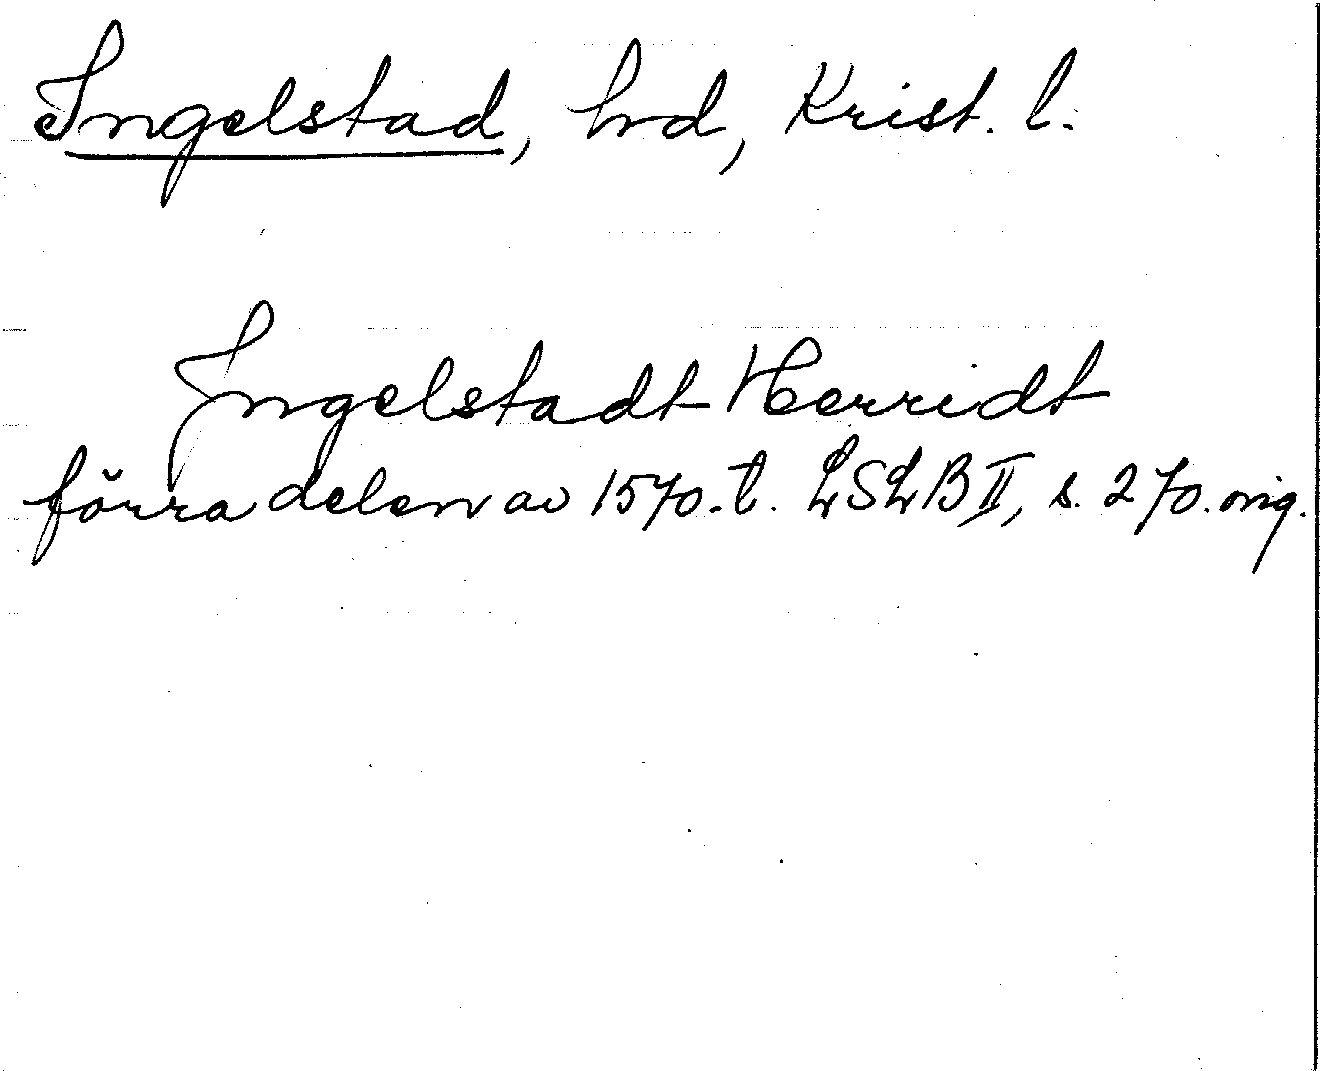 Ingelstad, hd, Krist. l.
Ingelstadt Herridt
förra delen av 1570-t. LSLB II, s. 270. orig.